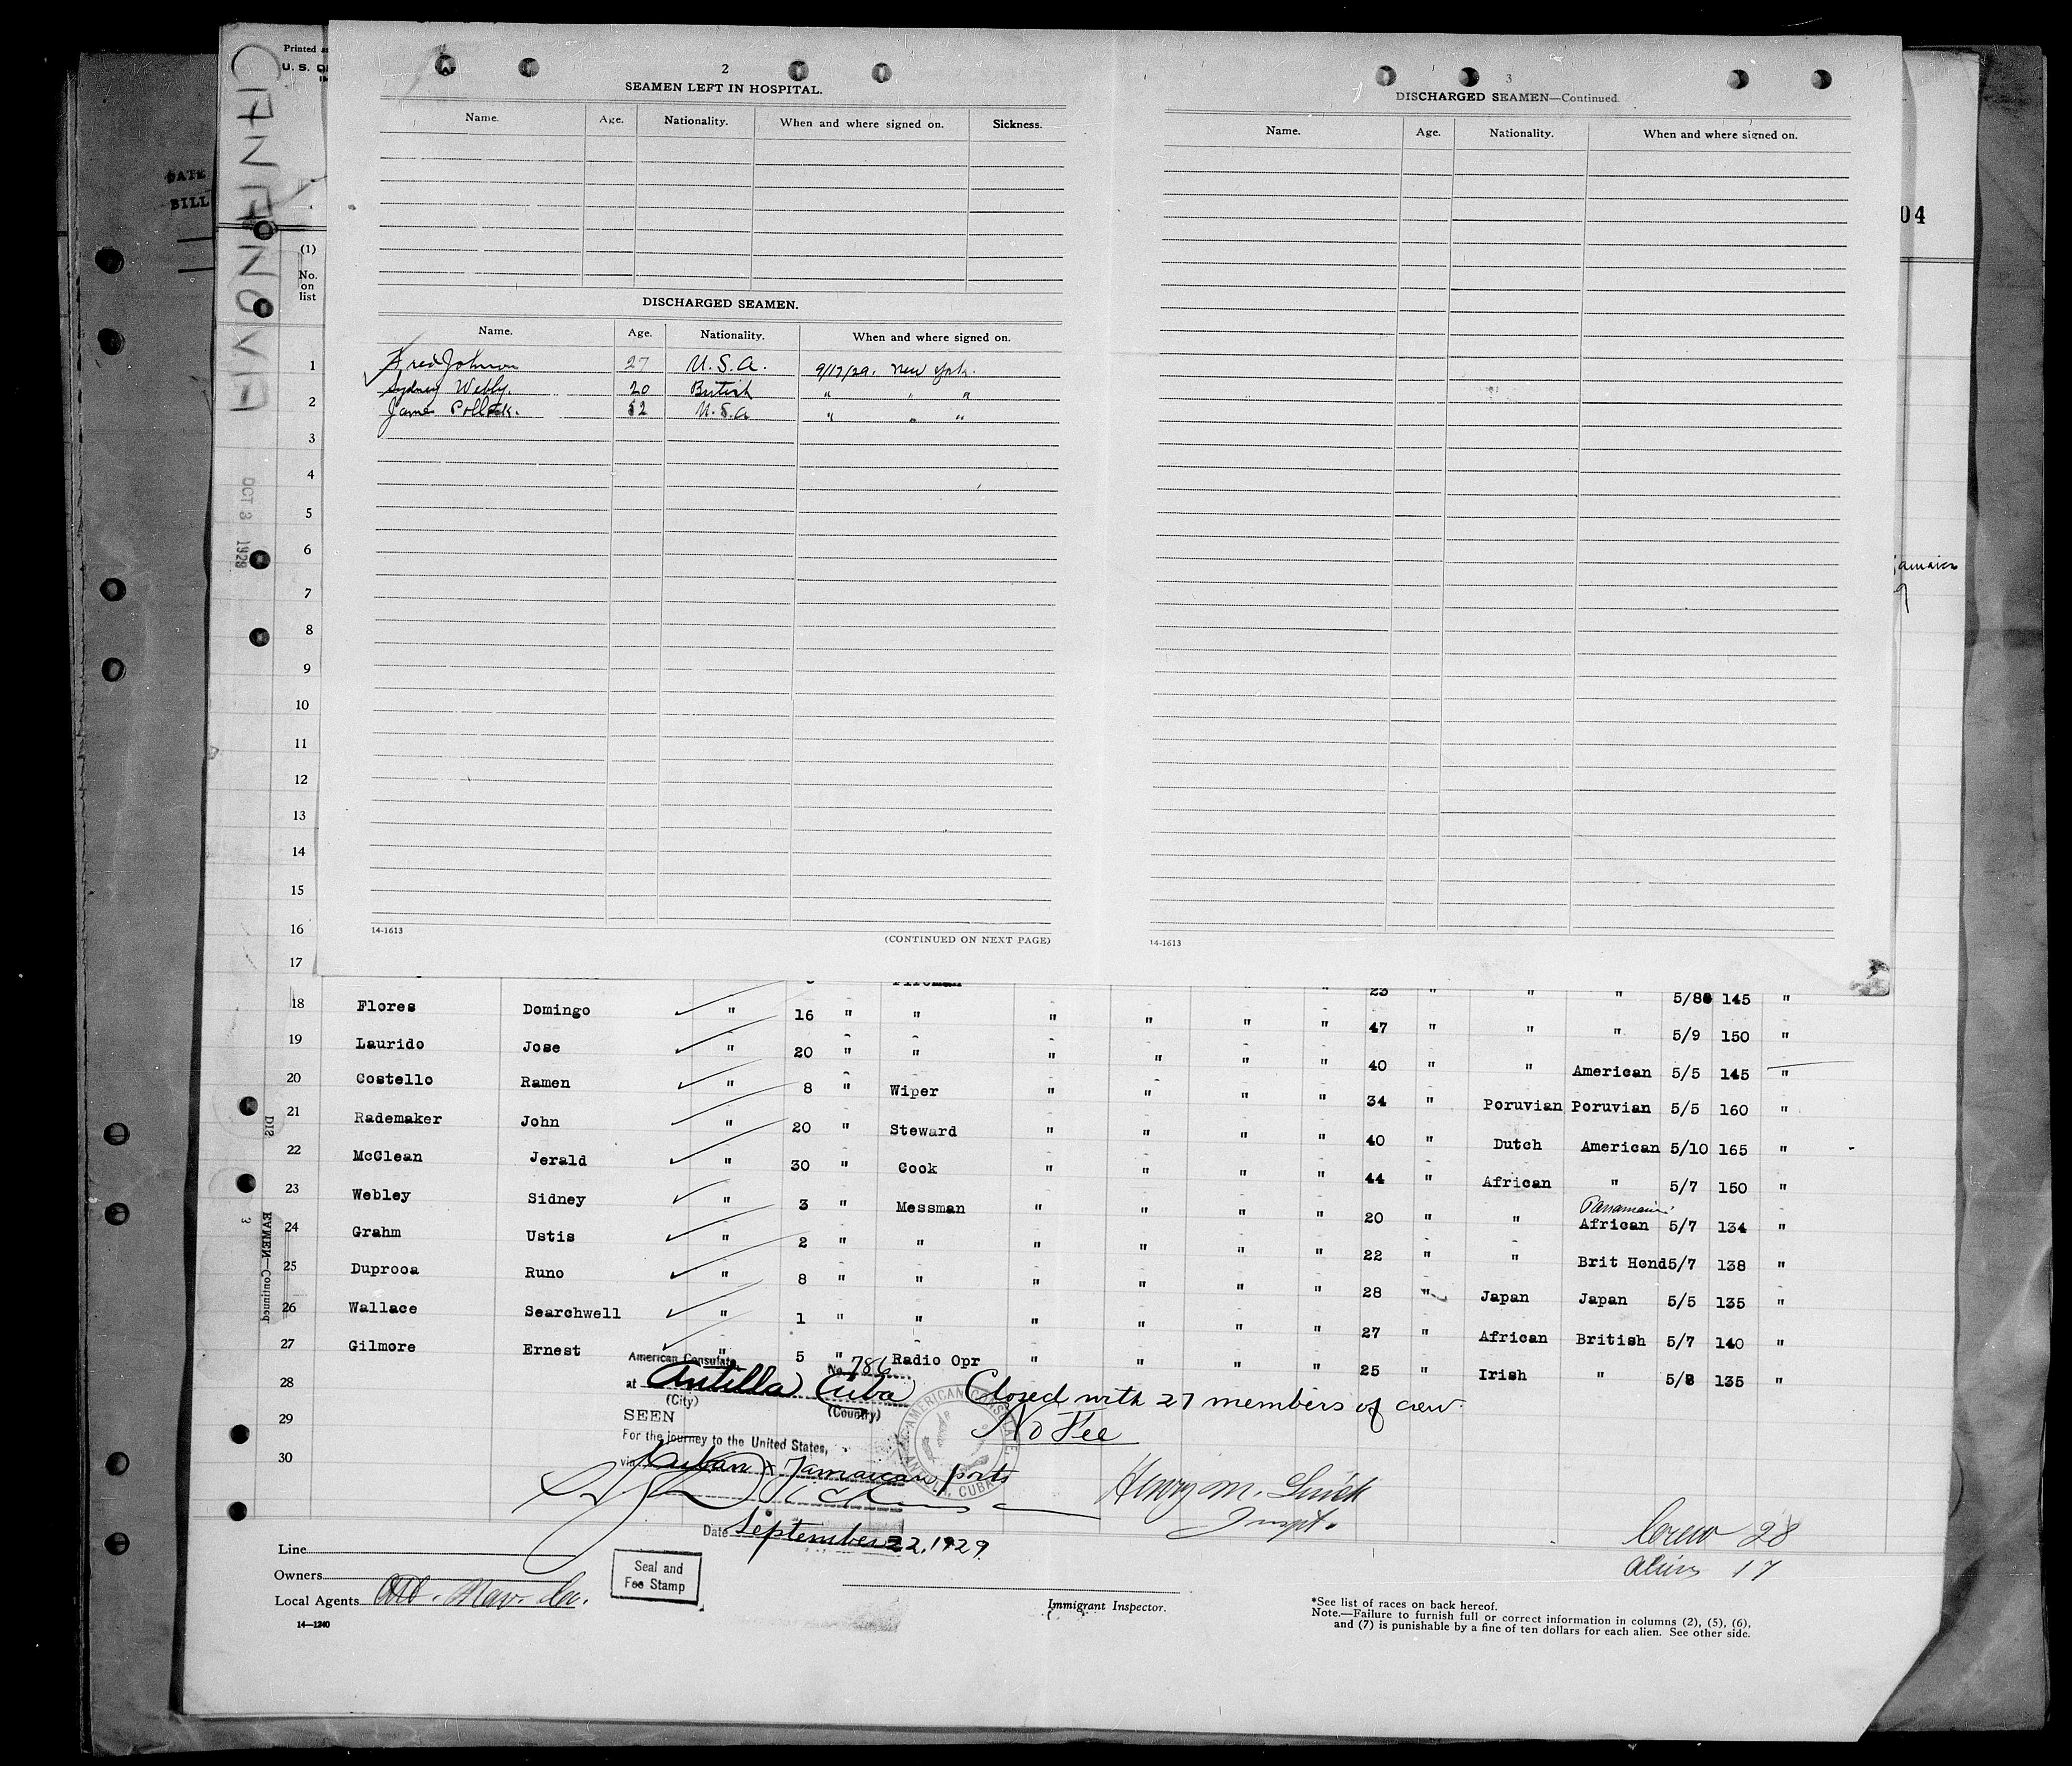 CANANOVA
Printed
U. S.
DATE
BILL
OCT 3 1929
(1)
No.
on
list
04
Jamaica
9
2
SEAMEN LEFT IN HOSPITAL.
Name. Age. Nationality. When and where signed on. Sickness.
DISCHARGED SEAMEN.
Name. Age. Nationality. When and where signed on.
Fred Johnson 27 U.S.A. 9/17/29. New York.
Sydney Webly. 20 British " " "
James Pollock. 52 U.S.A " " "
14-1613
(CONTINUED ON NEXT PAGE)
3
DISCHARGED SEAMEN—Continued.
Name. Age. Nationality. When and where signed on.
14-1613
1
2
3
4
5
6
7
8
9
10
11
12
13
14
15
16
17
Fireman 23 " " " 5/8 145 "
18 Flores Domingo " 16 " " " " " " 47 " " " 5/9 150 "
19 Laurido Jose " 20 " " " " " " 40 " " American 5/5 145 "
20 Costello Ramen " 8 " Wiper " " " " 34 " Poruvian Poruvian 5/5 160 "
21 Rademaker John " 20 " Steward " " " " 40 " Dutch American 5/10 165 "
22 McClean Jerald " 30 " Cook " " " " 44 " African " 5/7 150 "
Panamaian
23 Webley Sidney " 3 " Messman " " " " 20 " " African 5/7 134 "
24 Grahm Ustis " 2 " " " " " " 22 " " Brit Hond 5/7 138 "
25 Duprooa Runo " 8 " " " " " " 28 " Japan Japan 5/5 135 "
26 Wallace Searchwell " 1 " " " " " " 27 " African British 5/7 140 "
27 Gilmore Ernest " 5 " Radio Opr " " " " 25 " Irish " 5/8 135 "
28
29
30
DIS
3
EAMEN—Continued.
American Consulate No. 786
at Antilla Cuba
(City) (Country)
SEEN
For the journey to the United States,
via Cuban & Jamaican ports
Date September 22, 1929
Closed with 27 members of crew.
No Fee
AMERICAN CONSULATE
ANTILLA, CUBA
Henry M.
Inspt.
Crew 28
Aliens 17
Line
Owners
Local Agents
Seal and
Fee Stamp
Immigrant Inspector.
14—1240
*See list of races on back hereof.
Note.—Failure to furnish full or correct information in columns (2), (5), (6),
and (7) is punishable by a fine of ten dollars for each alien. See other side.